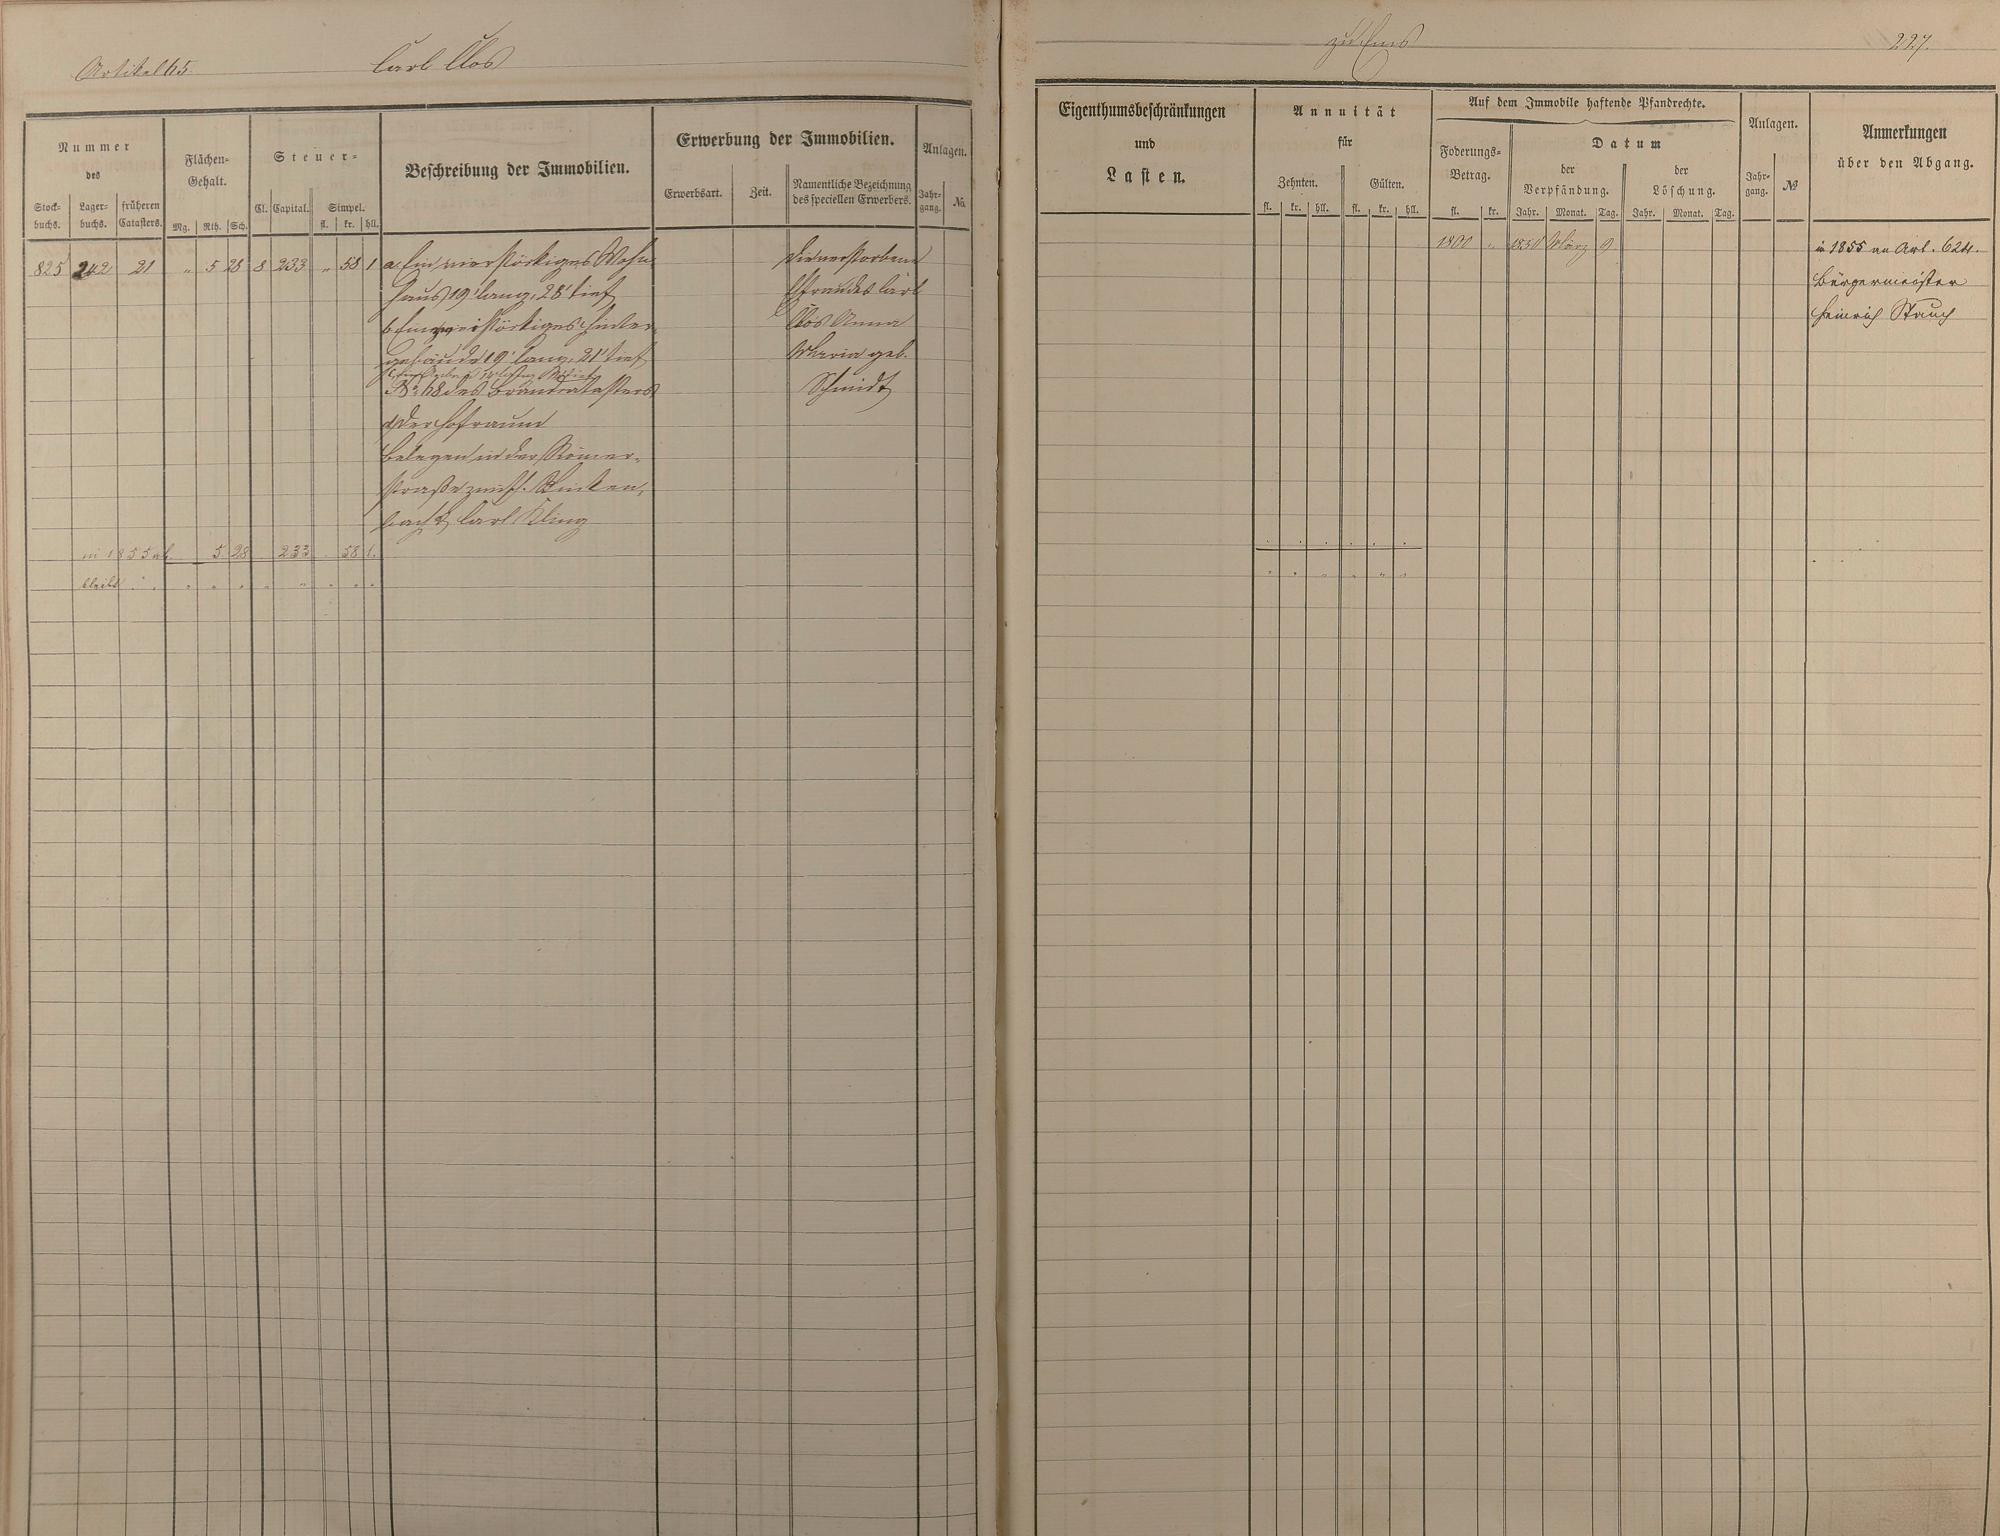 Artikel 65. Carl Clos
Nummer
des
Stock-
buchs.
Lager-
buchs.
früheren
Catasters.
Flächen-
Gehalt.
Mg. Rth. Sch.
Steuer-
Cl. Capital. Simpel.
fl. kr. hll.
Beschreibung der Immobilien.
Erwerbung der Immobilien.
Erwerbsart. Zeit.
Namentliche Bezeichnung
des speciellen Erwerbers.
Anlagen.
Jahr-
gang. No.
825 242 21 " 5 28 8 233 " 58 1
a. Ein vierstöckiges Wohn-
haus 19' lang, 28' tief
b. Ein zweistöckiges Hinter-
gebäude 19' lang, 21' tief
No 68 des Brandcatasters
d. Der Hofraum
Belegen in der Römer-
straße zwisch. Linken-
bach & Carl Kling
Die verstorbene
Ehefrau des Carl
Clos Anna
Maria geb.
Schmidt
in 1855 ab 5 28 233 58 1.
bleibt " " " " " " " " "
zu Ems 227.
Eigenthumsbeschränkungen
und
Lasten.
Annuität
für
Zehnten. Gülten.
fl. kr. hll. fl. kr. hll.
Auf dem Immobile haftende Pfandrechte.
Foderungs-
Betrag.
fl. kr.
Datum
der
Verpfändung.
Jahr. Monat. Tag.
der
Löschung.
Jahr. Monat. Tag.
Anlagen.
Jahr-
gang. No
Anmerkungen
über den Abgang.
1800 " 1851 März 9
in 1855 an Art. 624.
Bürgermeister
Heinrich Stauch